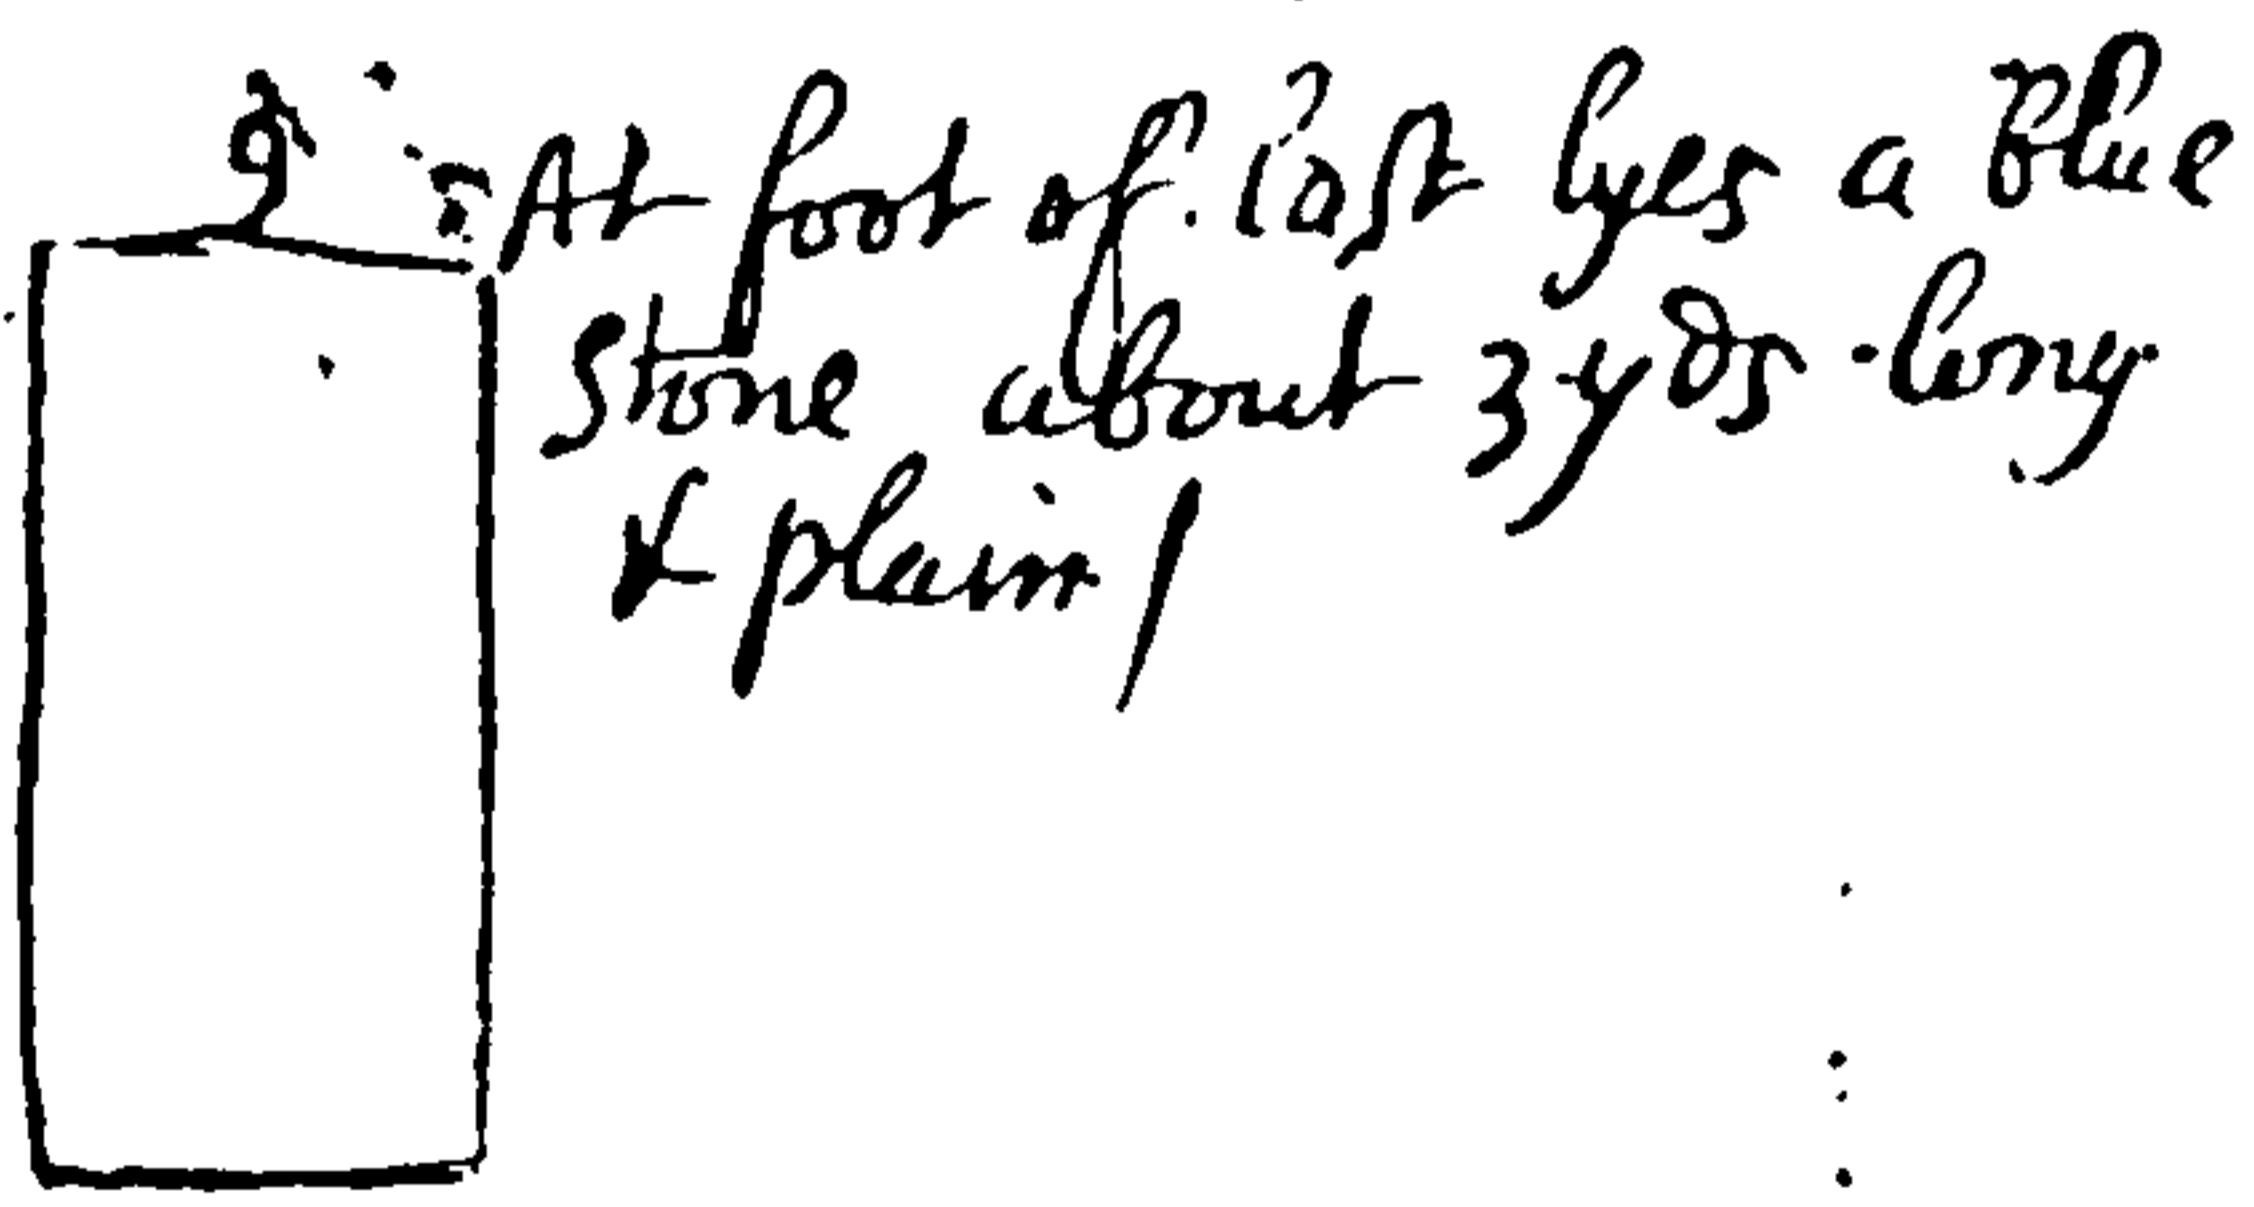 2
At foot of: last lyes a Blue
Stone about 3 yds long
& plain /